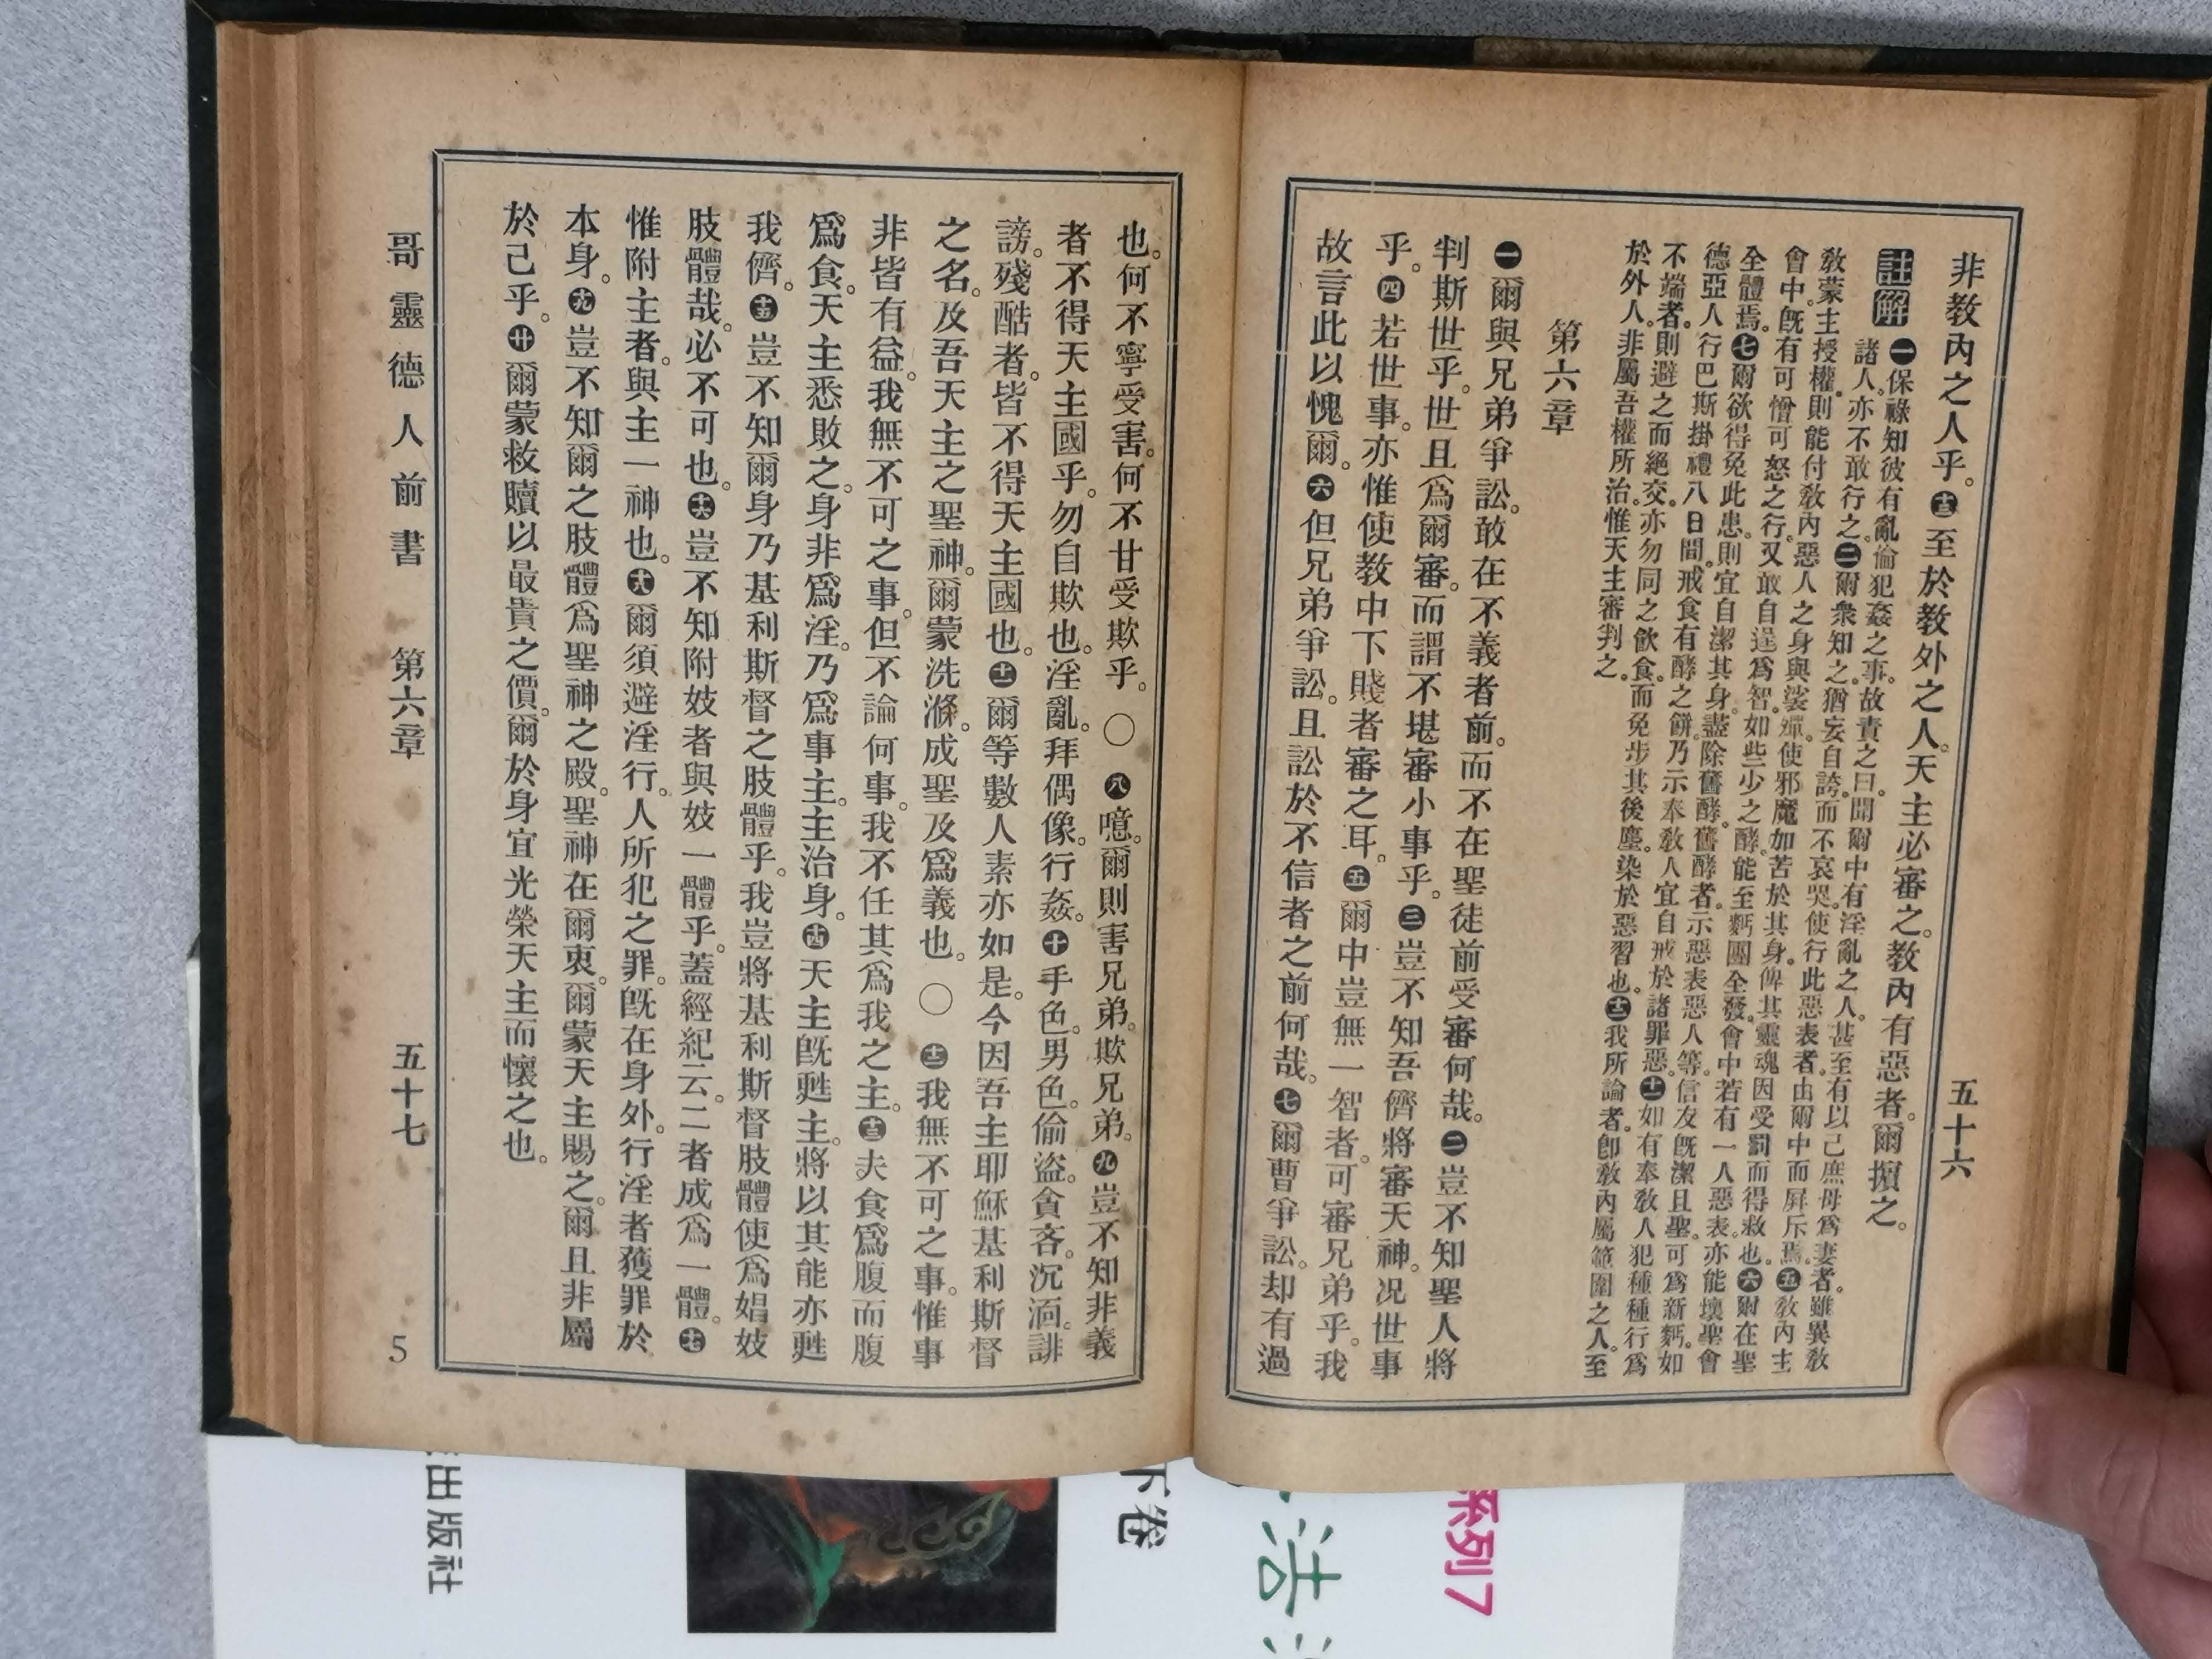 五十六
非教內之人乎。十三至於教外之人。天主必審之。教內有惡者。爾擯之。
註解 一保祿知彼有亂倫犯姦之事。故責之曰。聞爾中有淫亂之人。甚至有以己庶母爲妻者。雖異敎
諸人。亦不敢行之。二爾衆知之。猶妄自誇。而不哀哭。使行此惡表者。由爾中而屛斥焉。五敎內主
敎蒙主授權。則能付敎內惡人之身與裟殫。使邪魔加苦於其身。俾其靈魂因受罰而得救也。六爾在聖
會中。旣有可憎可怒之行。又敢自逞爲智。如些少之酵。能至麪團全發。會中若有一人惡表。亦能壞聖會
全體焉。七爾欲得免此患。則宜自潔其身。盡除舊酵。舊酵者。示惡表惡人等。信友旣潔且聖。可爲新麪。如
德亞人行巴斯掛禮八日間。戒食有酵之餅。乃示奉敎人宜自戒於諸罪惡。十一如有奉敎人犯種種行爲
不端者。則避之而絕交。亦勿同之飮食。而免步其後塵。染於惡習也。十二我所論者。卽敎內屬範圍之人。至
於外人。非屬吾權所治。惟天主審判之。
第六章
一爾與兄弟爭訟。敢在不義者前。而不在聖徒前受審何哉。二豈不知聖人將
判斯世乎。世且爲爾審。而謂不堪審小事乎。三豈不知吾儕將審天神。况世事
乎。四若世事。亦惟使教中下賤者審之耳。五爾中豈無一智者。可審兄弟乎。我
故言此以愧爾。六但兄弟爭訟。且訟於不信者之前何哉。七爾曹爭訟。却有過
也。何不寧受害。何不甘受欺乎。〇八噫。爾則害兄弟。欺兄弟。九豈不知非義
者不得天主國乎。勿自欺也。淫亂。拜偶像。行姦。十手色。男色。偷盜。貪吝。沉湎。誹
謗。殘酷者。皆不得天主國也。十一爾等數人素亦如是。今因吾主耶穌基利斯督
之名。及吾天主之聖神。爾蒙洗滌。成聖及爲義也。〇十二我無不可之事。惟事
非皆有益。我無不可之事。但不論何事。我不任其爲我之主。十三夫食爲腹而腹
爲食。天主悉敗之。身非爲淫。乃爲事主。主治身。十四天主旣甦主。將以其能亦甦
我儕。十五豈不知爾身乃基利斯督之肢體乎。我豈將基利斯督肢體使爲娼妓
肢體哉。必不可也。十六豈不知附妓者與妓一體乎。蓋經紀云。二者成爲一體。十七
惟附主者。與主一神也。十八爾須避淫行。人所犯之罪。旣在身外。行淫者獲罪於
本身。十九豈不知爾之肢體爲聖神之殿。聖神在爾衷。爾蒙天主賜之。爾且非屬
於己乎。廿爾蒙救贖以最貴之價。爾於身宜光榮天主而懷之也。
哥靈德人前書 第六章 五十七 5
出版社
下卷
法
系列7